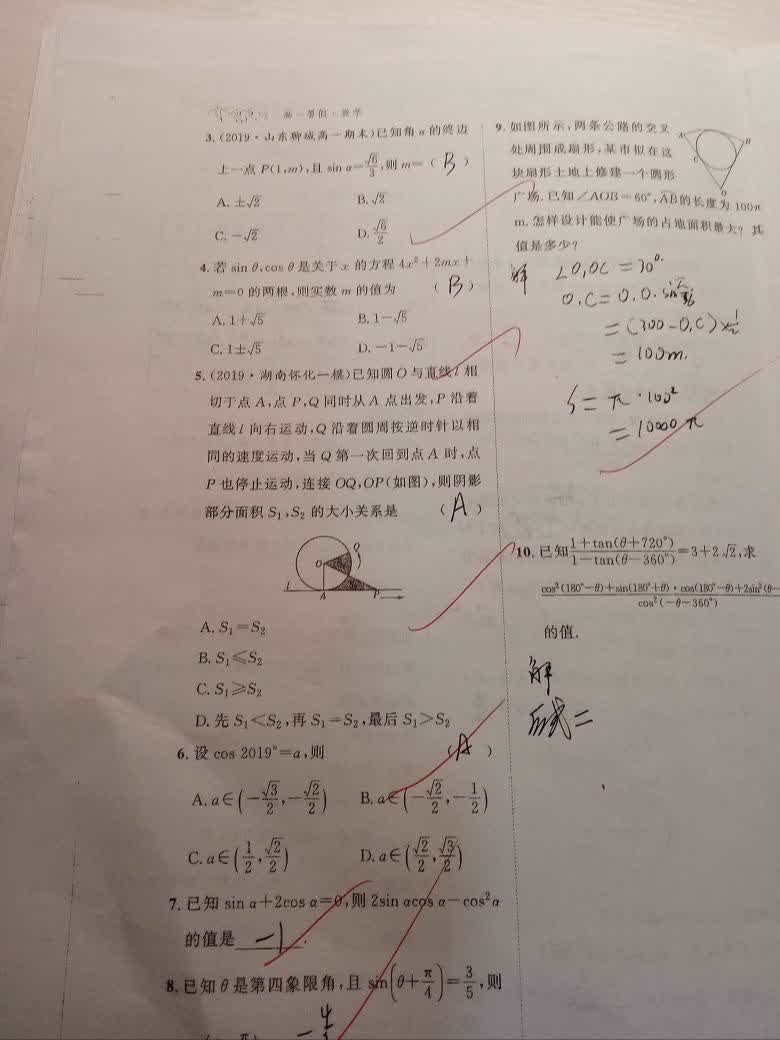 高一暑假·数学
3.(2019·山东聊城高一期末)已知角α的终边
上一点P(1,m),且sin α=√6/3,则m=(B)
A.±√2 B.√2
C.-√2 D.√6/2
4.若sin θ,cos θ是关于x的方程4x²+2mx+
m=0的两根,则实数m的值为 (B)
A.1+√5 B.1-√5
C.1±√5 D.-1-√5
5.(2019·湖南怀化一模)已知圆O与直线l相
切于点A,点P,Q同时从A点出发,P沿着
直线l向右运动,Q沿着圆周按逆时针以相
同的速度运动,当Q第一次回到点A时,点
P也停止运动,连接OQ,OP(如图),则阴影
部分面积S₁,S₂的大小关系是 (A)
Q
O
l A P
A.S₁=S₂
B.S₁≤S₂
C.S₁≥S₂
D.先S₁<S₂,再S₁=S₂,最后S₁>S₂
6.设cos 2019°=a,则 (A)
A.a∈(-√3/2,-√2/2) B.a∈(-√2/2,-1/2)
C.a∈(1/2,√2/2) D.a∈(√2/2,√3/2)
7.已知sin α+2cos α=0,则2sin αcos α-cos²α
的值是 -1.
8.已知θ是第四象限角,且sin(θ+π/4)=3/5,则
-4/3
9.如图所示,两条公路的交叉
处周围成扇形,某市拟在这
块扇形土地上修建一个圆形
广场.已知∠AOB=60°,AB的长度为100π
m.怎样设计能使广场的占地面积最大?其
值是多少?
A B
O
解 ∠O₁OC=30°.
O₁C=O₁O·sin π/6
=(300-O₁C)×1/2
=100m.
S=π·100²
=10000π
10.已知1+tan(θ+720°)/1-tan(θ-360°)=3+2√2,求
cos²(180°-θ)+sin(180°+θ)·cos(180°-θ)+2sin²(θ-
cos²(-θ-360°)
的值.
解
原式=